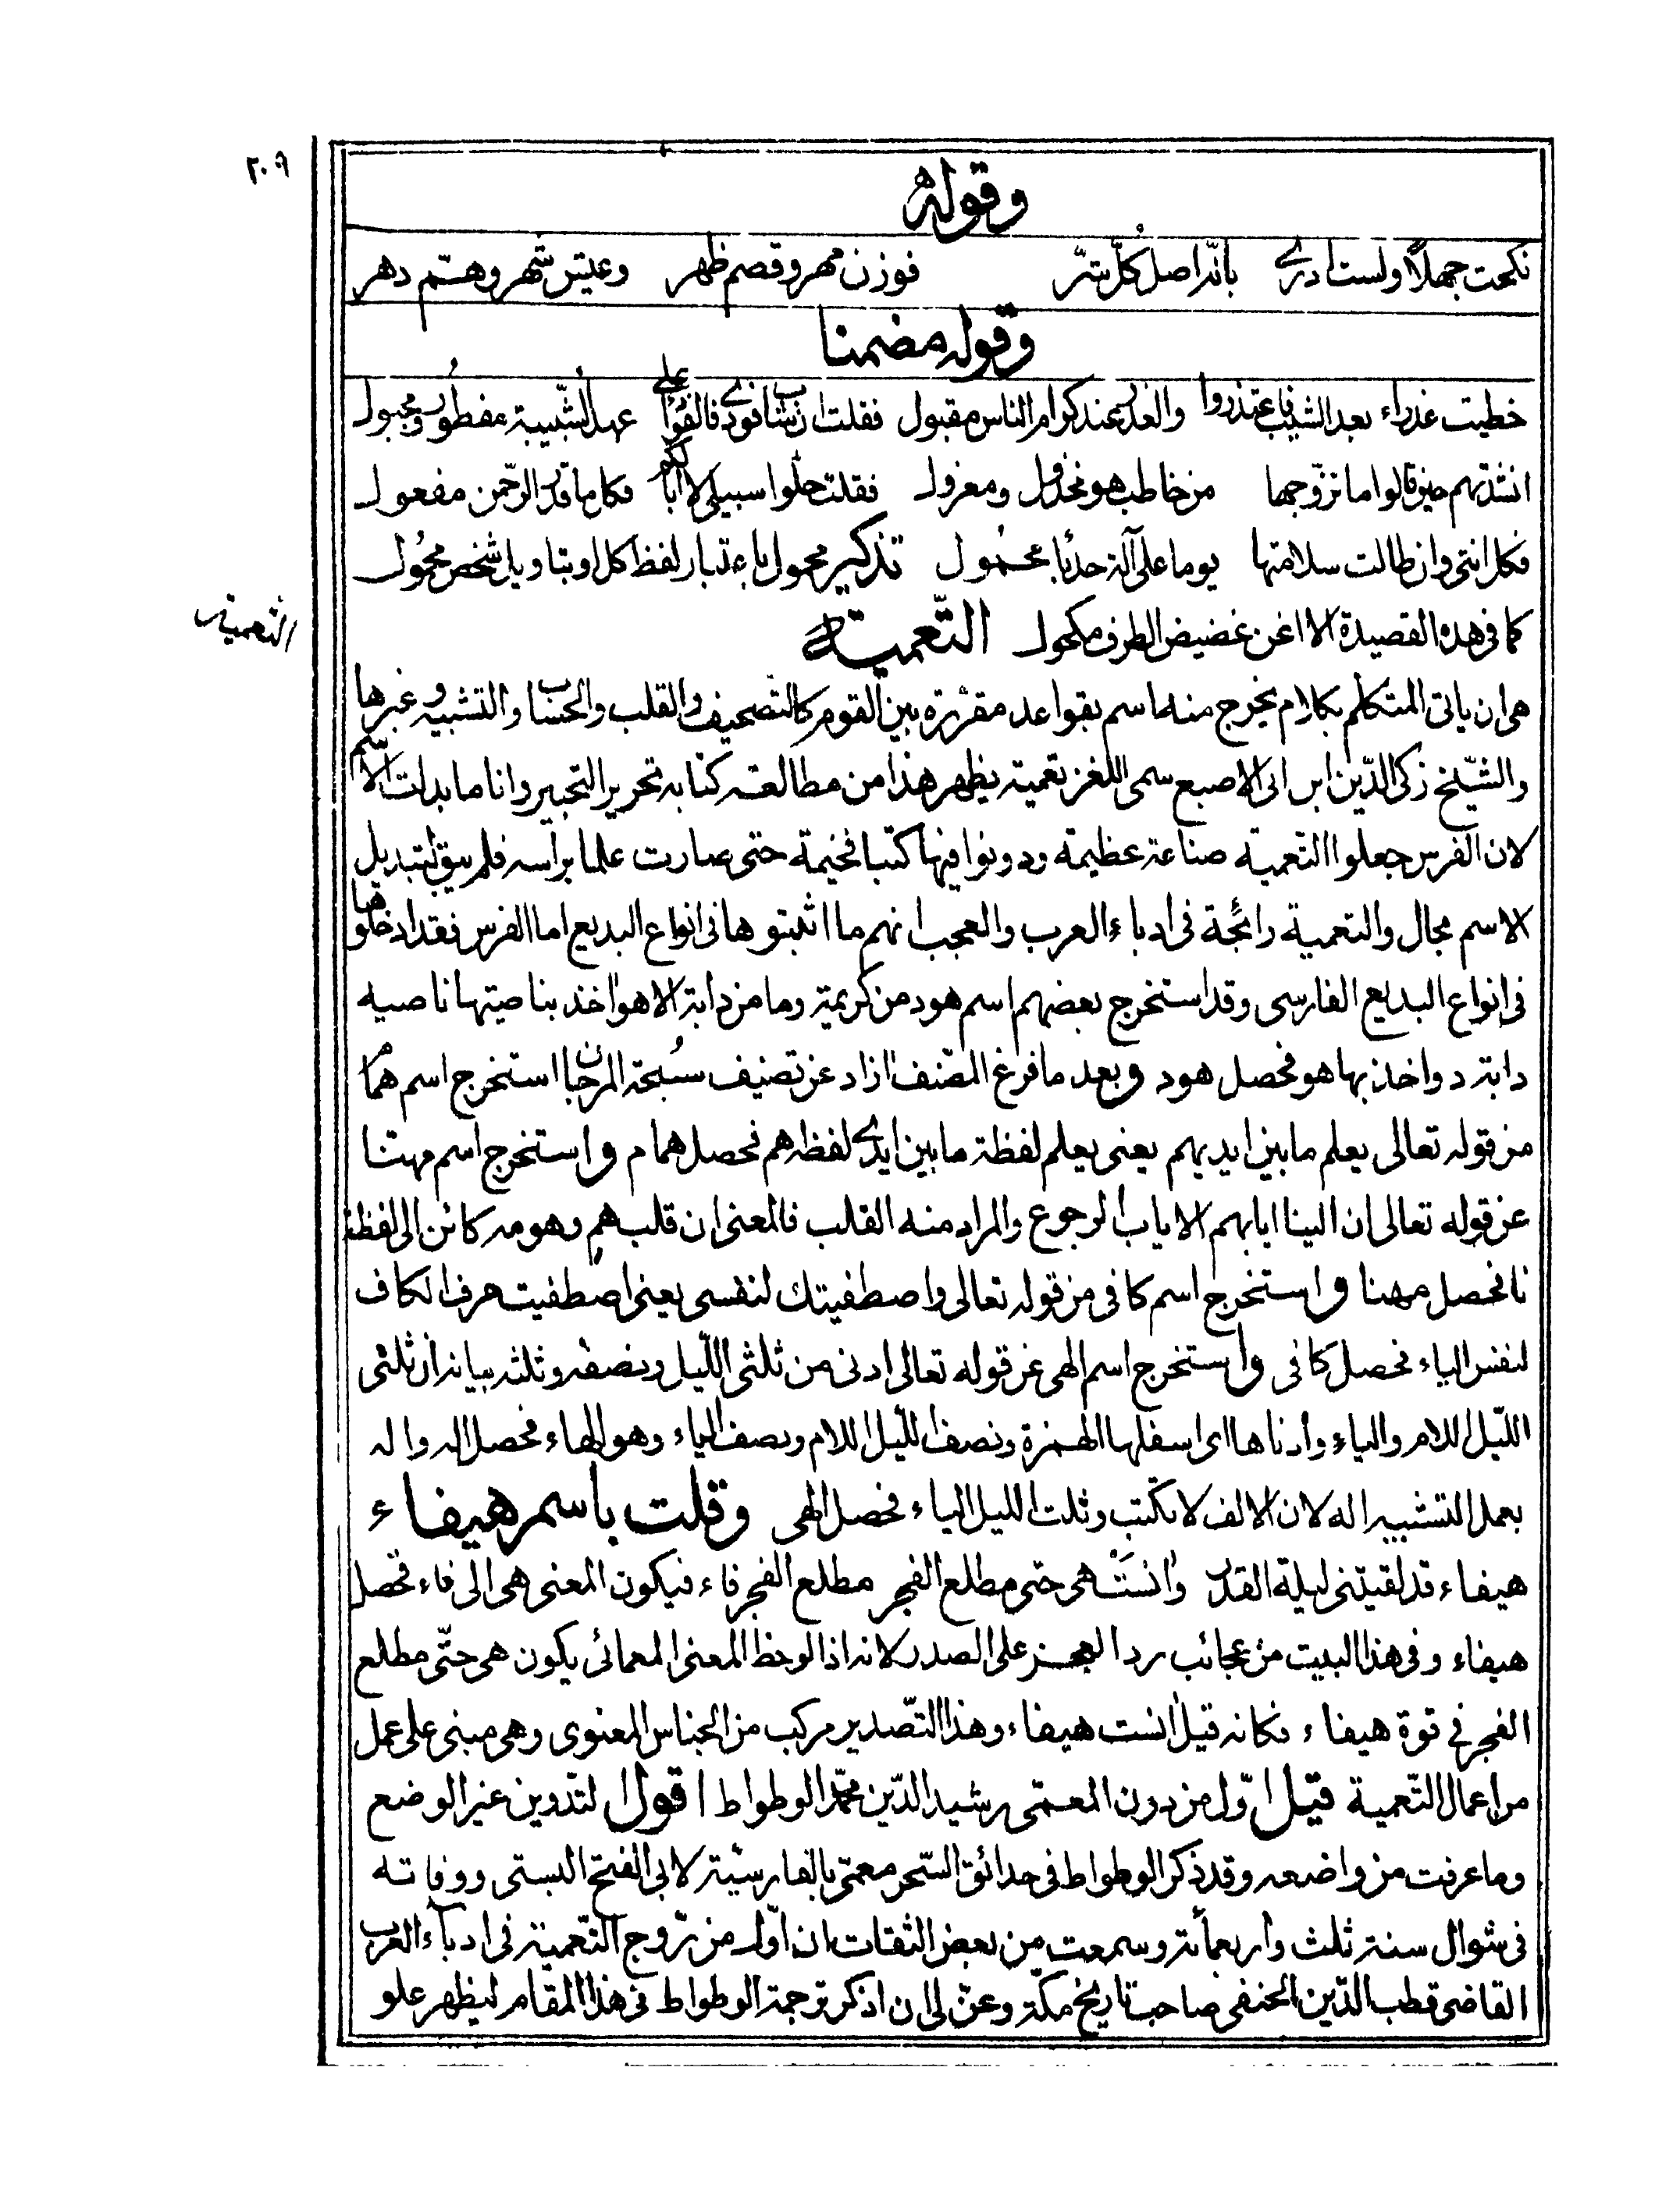 ٢٠٩
وقوله
نكحت جهلا ولست ادرى بانه اصل كل شر فوزن مهر وقصم ظهر وعيش شهر وهم دهر
وقوله مضمنا
خطبت عذراء بعد الشيب فاعتذروا والعذر عند كرام الناس مقبول فقلت ان شاب فودى فالفؤاد على عهد الشبيبة مفطور ومجبول
انشدتهم حين قالوا ما تزوجها من خاطب هو مخذول ومعزول فقلت خلوا سبيلى لا ابا لكم فكل ما قدر الرحمن مفعول
فكل انثى وان طالت سلامتها يوما على آلة حدباء محمول تذكير محمول باعتبار لفظ كل او بتاويل شخص محمول
كما فى هذه القصيدة الا اغن غضيض الطرف مكحول التعمية
التعمية
هى ان ياتى المتكلم بكلام يخرج منه اسم بقواعد مقررة بين القوم كالتصحيف والقلب والحساب والتشبيه وغيرها
والشيخ زكى الدين ابن ابى الاصبع سمى اللغز تعمية يظهر هذا من مطالعة كتابه تحرير التحبير وانا ما بدلت الاسم
لان الفرس جعلوا التعمية صناعة عظيمة ودونوا فيها كتبا فخيمة حتى صارت علما براسه فلم يبق لتبديل
الاسم مجال والتعمية رائجة فى ادباء العرب والعجب انهم ما اثبتوها فى انواع البديع اما الفرس فقد ادخلوها
فى انواع البديع الفارسى وقد استخرج بعضهم اسم هود من كريمة وما من دابة الا هو اخذ بناصيتها ناصيه
دابة د واخذ بها هو فحصل هود وبعد ما فرغ المصنف ازاد عن تصنيف سبحة المرجان استخرج اسم همام
من قوله تعالى يعلم ما بين ايديهم يعنى يعلم لفظة ما بين ايدى لفظه هم فحصل همام واستخرج اسم مهنا
عن قوله تعالى ان الينا ايابهم الاياب الرجوع والمراد منه القلب فالمعنى ان قلب هم وهو مه كائن الى لفظة
نا فحصل مهنا واستخرج اسم كافى من قوله تعالى واصطفيتك لنفسى يعنى اصطفيت حرف الكاف
لنفس الياء فحصل كافى واستخرج اسم الهى عن قوله تعالى ادنى من ثلثى الليل ونصفه وثلثه بيانه ان ثلثى
الليل اللام والياء وادناها اى اسفلها الهمزة ونصف الليل اللام ونصف الياء وهو الهاء فحصل اله واله
بعمل التشبيه اله لان الالف لا تكتب وثلث الليل الياء فحصل الهى وقلت باسم هيفاء
هيفاء قد لقيتنى ليلة القدر وانست هى حتى مطلع الفجر مطلع الفجر فاء فيكون المعنى هى الى فاء فحصل
هيفاء وفى هذا البيت من عجائب رد العجز على الصدر لانه اذا لوحظ المعنى المعمائى يكون هى حتى مطلع
الفجر فى قوة هيفاء فكانه قيل انست هيفاء وهذا التصدير مركب من الجناس المعنوى وهى مبنى على عمل
من اعمال التعمية قيل اول من دون المعمى رشيد الدين محمد الوطواط اقول التدوين غير الوضع
وما عرفت من واضعه وقد ذكر الوطواط فى حدائق السحر معمى بالفارسية لابى الفتح البستى ووفاته
فى شوال سنة ثلث واربعمائة وسمعت من بعض الثقات ان اول من روج التعمية فى ادباء العرب
القاضى قطب الدين الحنفى صاحب تاريخ مكة وعن لى ان اذكر ترجمة الوطواط فى هذا المقام ليظهر علو